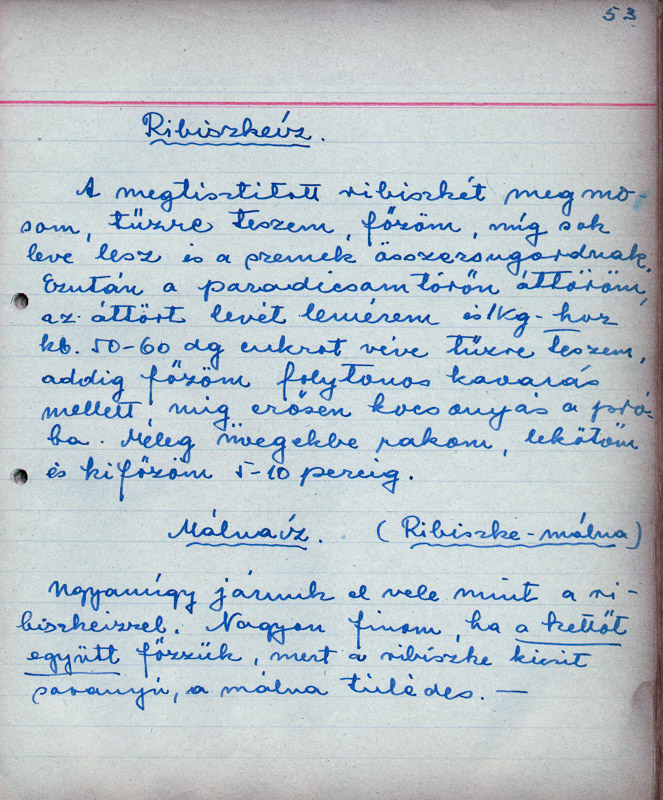 53
Ribiszkeíz.
A megtisztitott ribiszkét megmo-
som, tüzre teszem, főzöm, míg sok
leve lesz és a szemek összezsugordnak.
Ezután a paradicsamtörőn áttöröm,
az áttört levét lemérem és 1 kg-hoz
kb. 50-60 dg cukrot véve tüzre teszem,
addig főzöm folytonos kavarás
mellett, mig erősen kocsonyás a pró-
ba. Meleg üvegekbe rakom, lekötöm
és kifőzöm 5-10 percig.
Málnaíz. (Ribiszke-málna)
Ugyanúgy járunk el vele mint a ri-
biszkeizzel. Nagyon finom, ha a kettőt
együtt főzzük, mert a ribiszke kicsit
savanyú, a málna túlédes. —